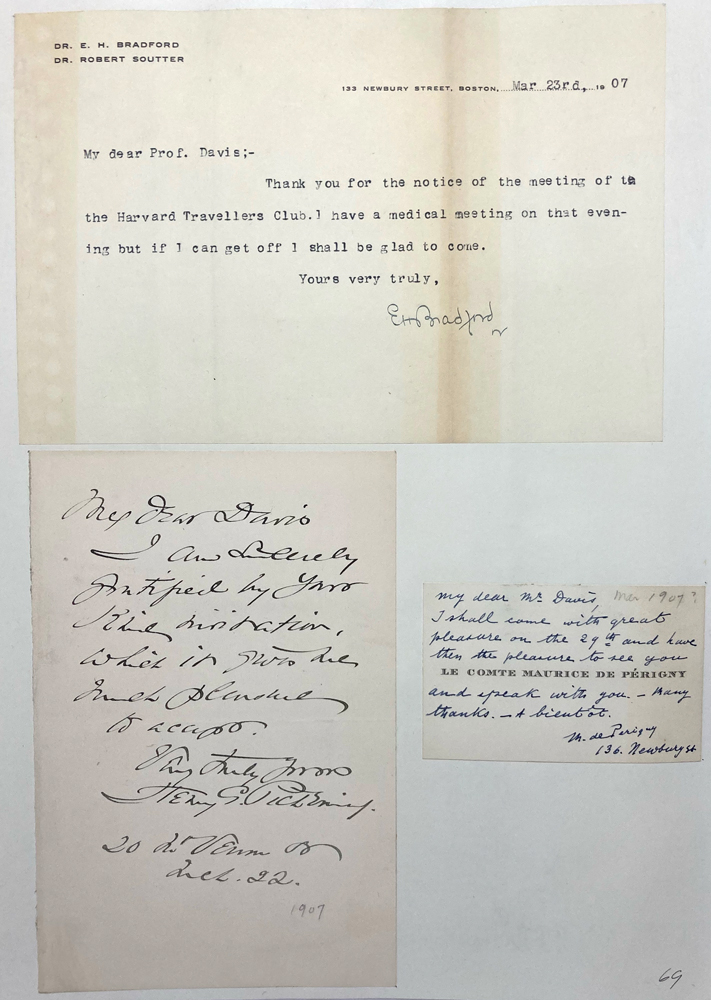 DR. E. H. BRADFORD
DR. ROBERT SOUTTER
133 NEWBURY STREET, BOSTON, Mar 23rd, 1907
My dear Prof. Davis;-
Thank you for the notice of the meeting of te
the Harvard Travellers Club.I have a medical meeting on that even-
ing but if I can get off I shall be glad to come.
Yours very truly,
EHBradford
My Dear Davis
I am sincerely
gratified by your
kind invitation,
which it gives me
much pleasure
to accept.
Very truly yours
Henry G. Pickering.
20 Mt Vernon St
Mch. 22.
1907
my dear Mr Davis, Mar 1907?
I shall come with great
pleasure on the 29th and have
then the pleasure to see you
LE COMTE MAURICE DE PÉRIGNY
and speak with you. – Many
thanks. – A bientôt.
M. de Perigny
136. Newbury st
69